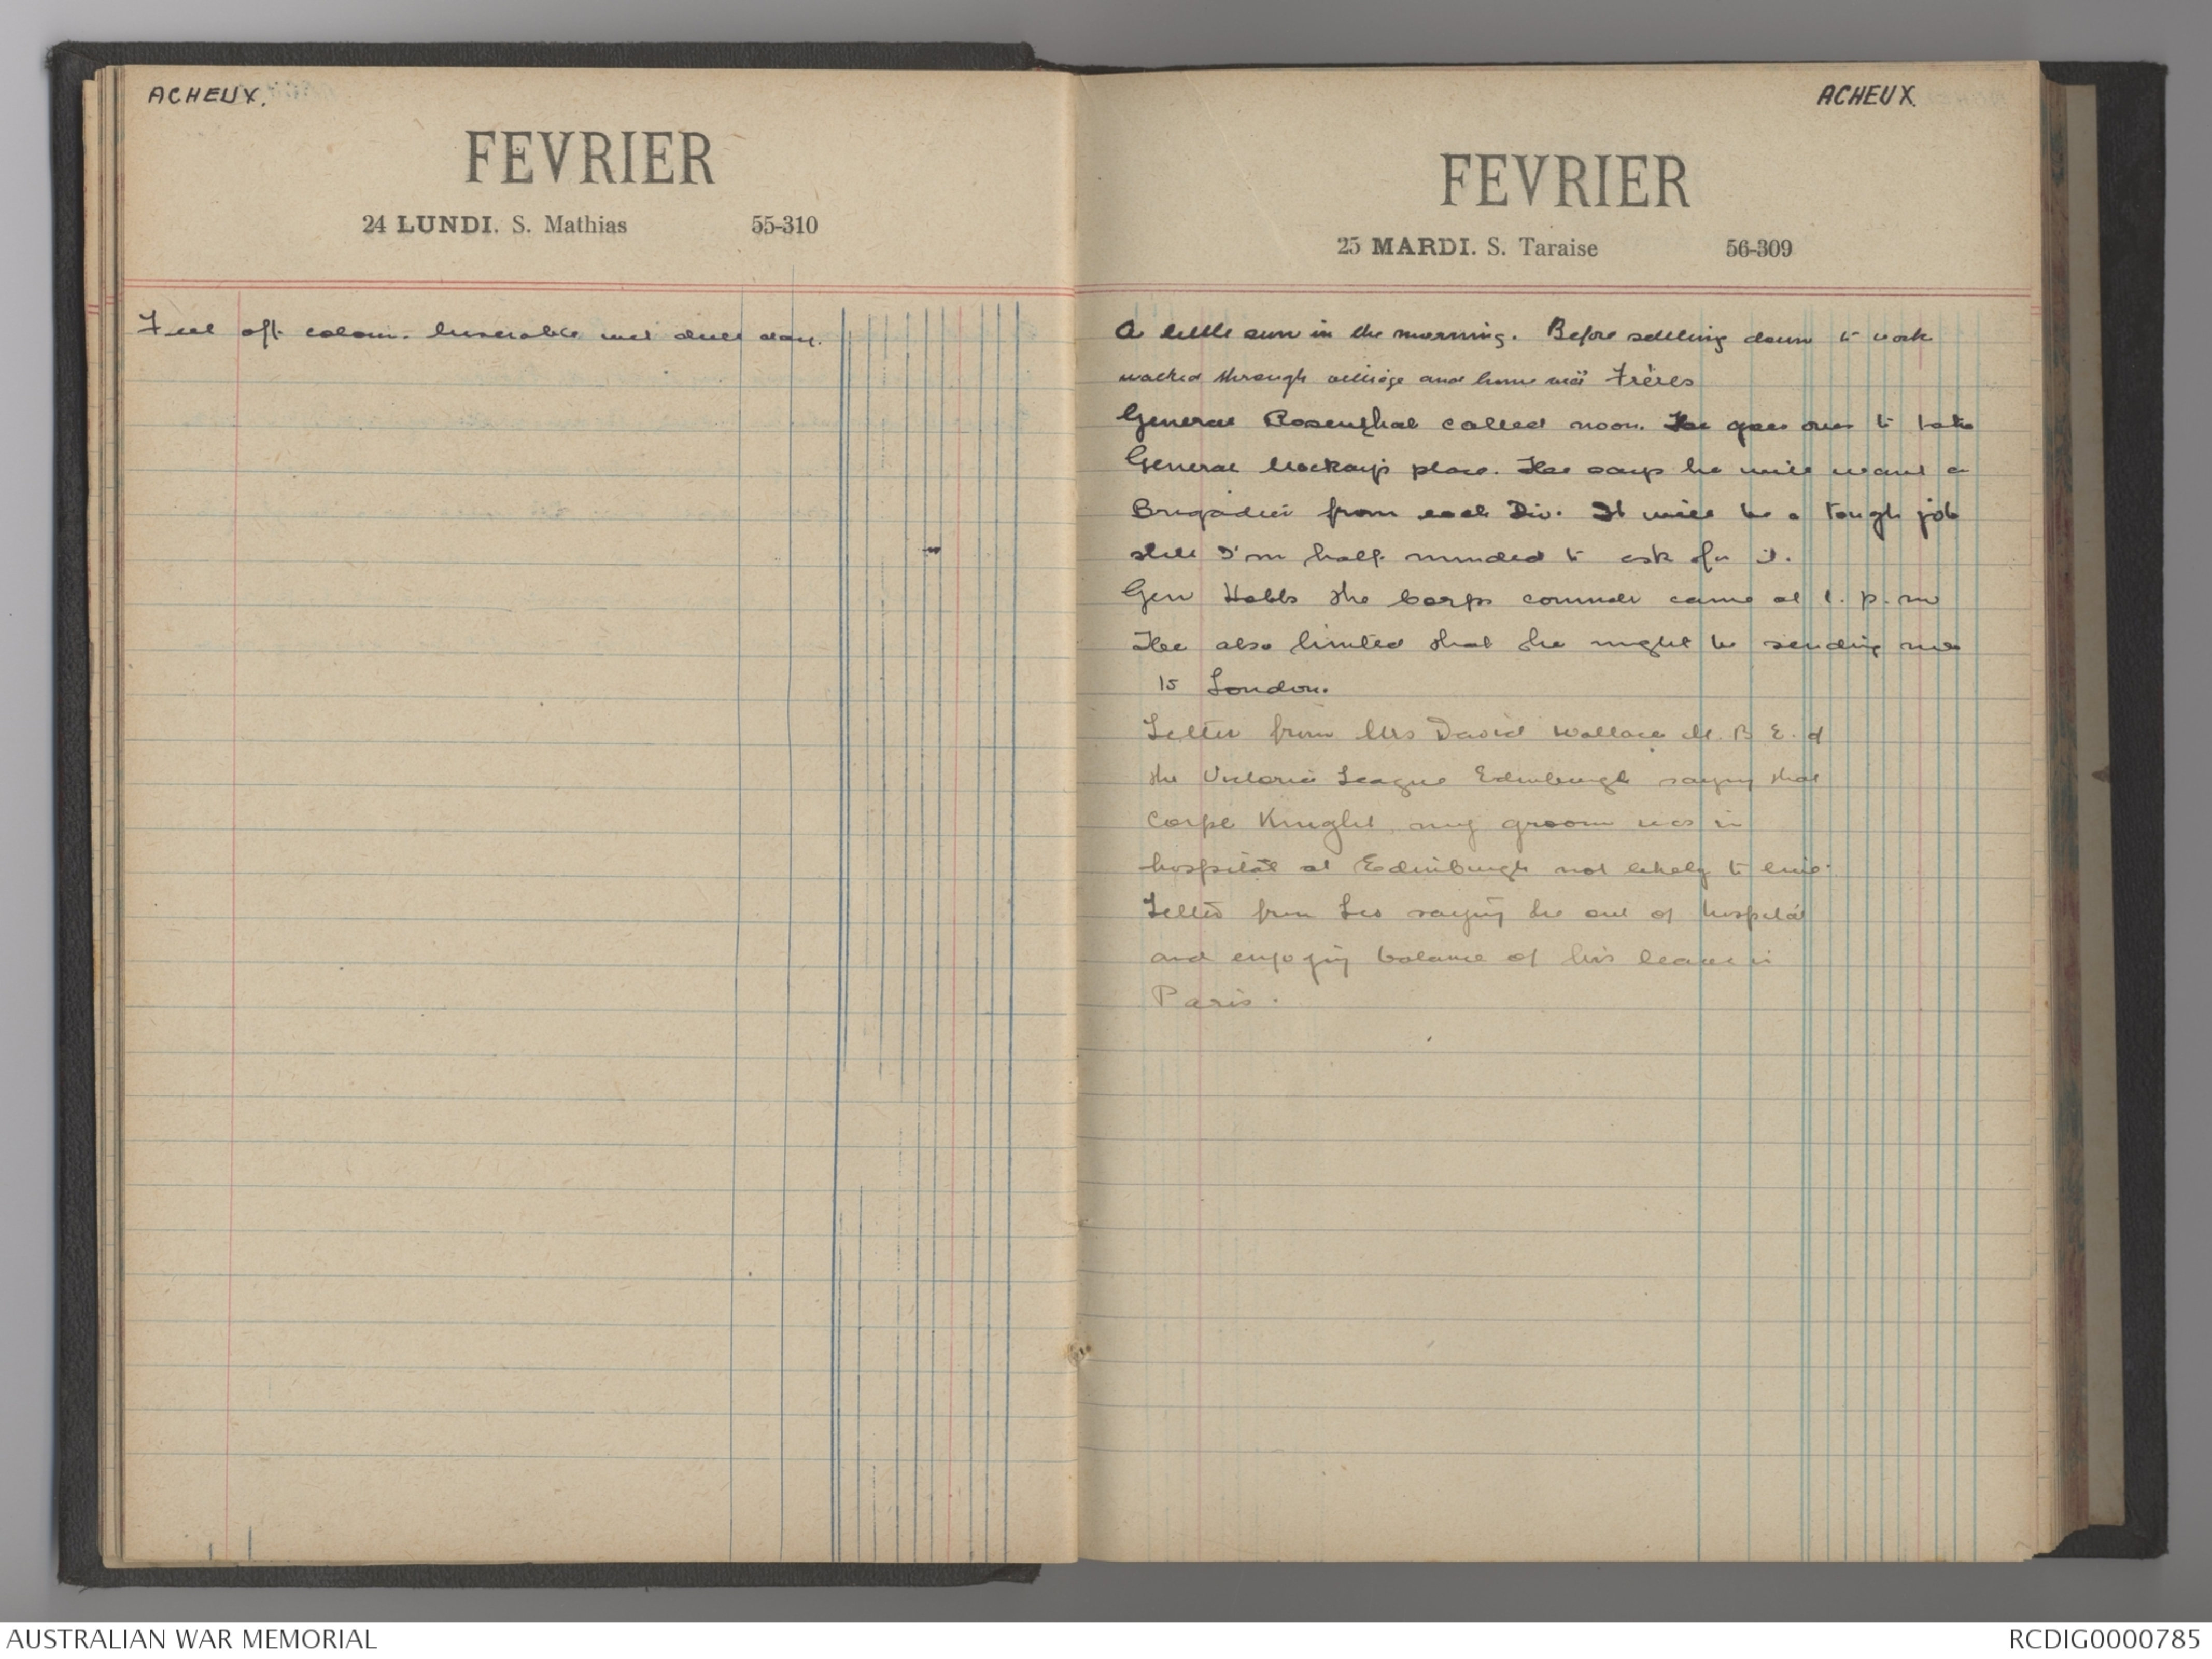 ACHEUX.
FEVRIER
24 LUNDI. S. Mathias 55-310
Feel off colour. Miserable wet dull day.
ACHEUX.
FEVRIER
25 MARDI. S. Taraise 56-309
A little sun in the morning. Before settling down to work
walked through village and home via Frères
General Rosenthal called noon. He goes over to take
General Mackay's place. He says he will want a
Brigadier from each Div. It will be a tough job
still I'm half minded to ask for it.
Gen Hobbs the Corps commdr came at 1. p.m
He also hinted that he might be sending me
to London.
Letter from Mrs David Wallace M.B.E. of
the Victoria League Edinburgh saying that
Corpl Knight my groom was in
hospital at Edinburgh not likely to live.
Letter from Leo saying he out of hospital
and enjoying balance of his leave in
Paris.
AUSTRALIAN WAR MEMORIAL
RCDIG0000785